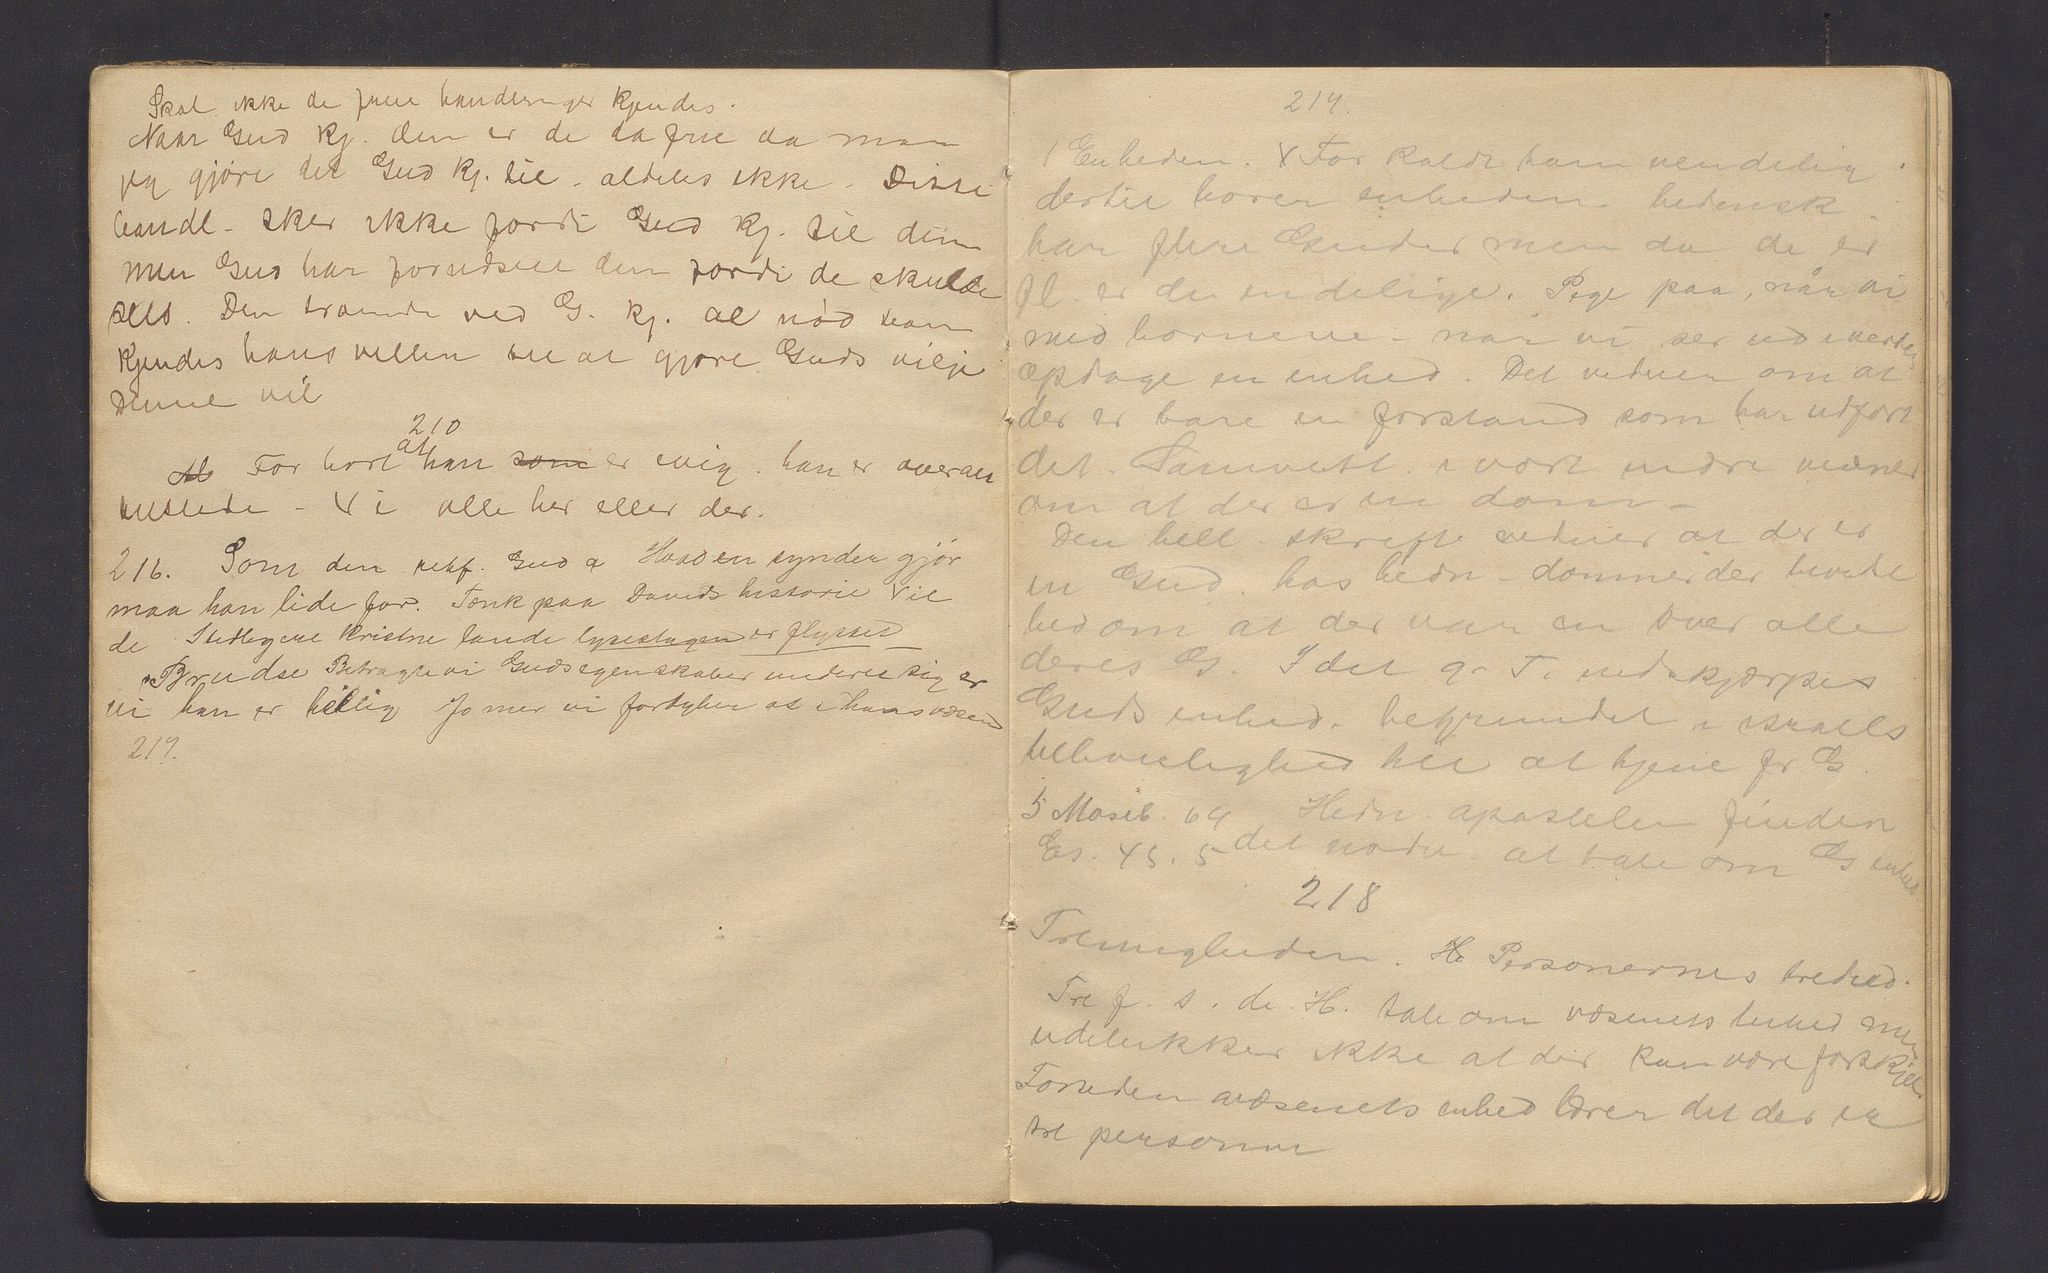 Skal ikke de frie handlinger kjendes.
Naar Gud kj. dem er de da frie da maa
jeg gjøre det Gud kj. til - aldeles ikke - Disse
handl - sker ikke fordi Gud kj. til dem
men Gud har forudseet dem fordi de skulde
ske. Den troende ved G. kj. al nød han
kjendes hans villen til at gjøre Guds vilje
Denne vil
210
Før hørt at han som er evig. han er overalt
tilstede - Vi alle her eller der.
216. Som den retf. Gud Hvad en synder gjør
maa han lide for. Tænk paa Davids historie Vil
de kristne lande lysestagen er flyttet
Betragte vi Guds egenskaber
vi han er hellig Jo mer vi fordyber os i hans væsen
217.
217.
1 Enheden. Før kaldt ham uendelig.
dertil hører enheden. hedensk
har flere Guder men da de er
fl er de endelige. Pege paa, når vi
med børnene - når vi ser ud i verden
opdage en enhed. Det vidner om at
der er bare en forstand som har udført
det. Samvitt. i vort indre vidner
om at der er en dom -
Den hell. skrift vidner at der er
en Gud. hos hedn - dommer der
hed om at der var en over alle
deres G. I det g. T. indskjærpes
Guds enhed. begrundet i israels
tilbøielighed til at tjene fr G.
5 Moseb. 64 Hedn. apostelen finder
Es. 45. 5 det nødv. at tale om Gs enhed
218
Treenigheden. Personernes trehed.
Tre f. s. d. H. tale om væsenets enhed men
udelukker ikke at der kan være forskjel
Foruden væsenets enhed lærer det der er
tre personer